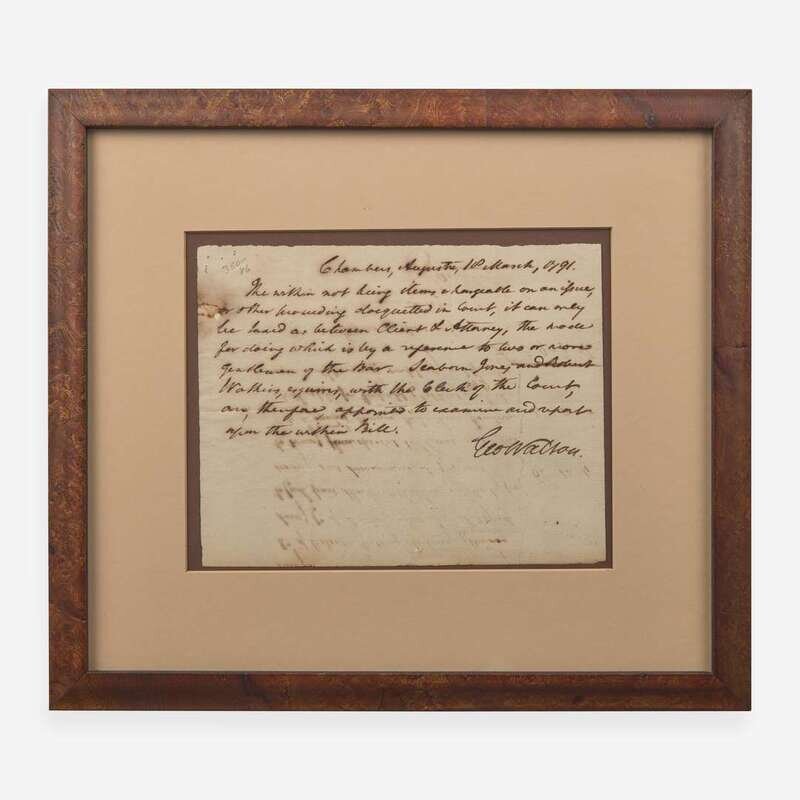 Chambers, Augusta, 10 March, 1791.
The within not being items chargeable on an issue,
or other proceeding docquetted in Court, it can only
be taxed as between Client & Attorney, the mode
for doing which is by a reference to two or more
gentlemen of the Bar. Seaborn Jones and Robert
Watkins, esquires, with the Clerk of the Court,
are, therefore, appointed to examine and report
upon the within Bill.
Geo Walton.